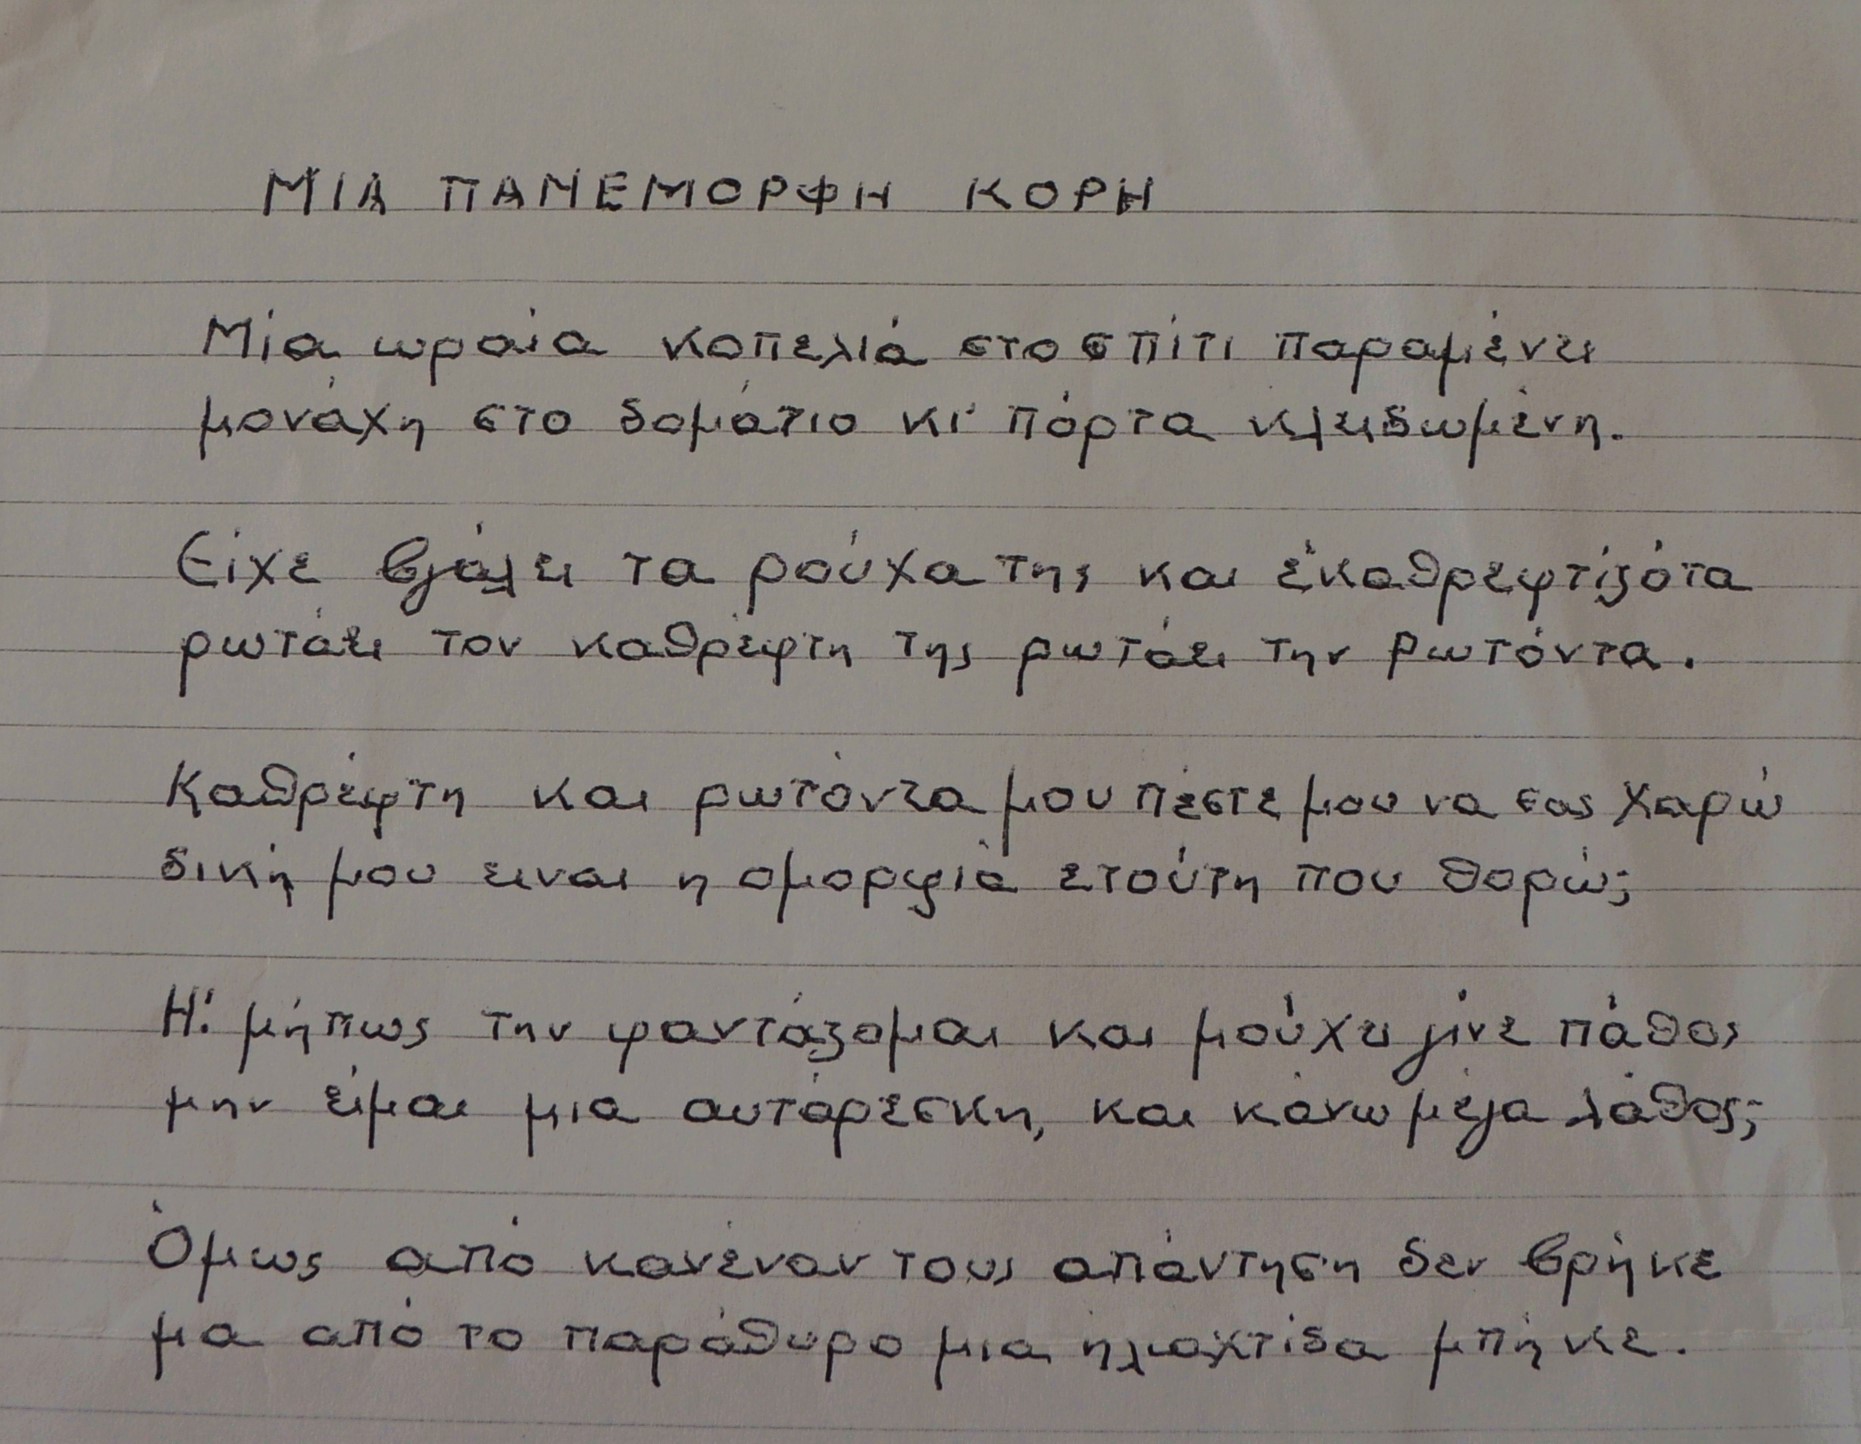 ΜΙΑ ΠΑΝΕΜΟΡΦΗ ΚΟΡΗ
Μία ωραία κοπελιά στο σπίτι παραμένει
μονάχη στο δομάτιο κι' πόρτα κλειδωμένη.
Είχε βγάλει τα ρούχα της και έκαθρεφτίζότα
ρωτάει τον καθρέφτη της ρωτάει την ρωτόντα.
Καθρέφτη και ρωτόντα μου πέστε μου να σας χαρώ
δική μου ειναι η ομορφιά ετούτη που θορώ;
Η΄. μήπως την φαντάζομαι και μούχει γίνε πάθος
μην είμαι μια αυτάρεσκη, και κάνω μέγα λάθος;
Όμως από κανέναν τους απάντηση δεν βρήκε
μα από το παράθυρο μια ηλιαχτίδα μπήκε.